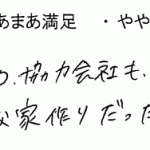 あまあ満足 ・やや
の.協力会社も、
な家作りだった